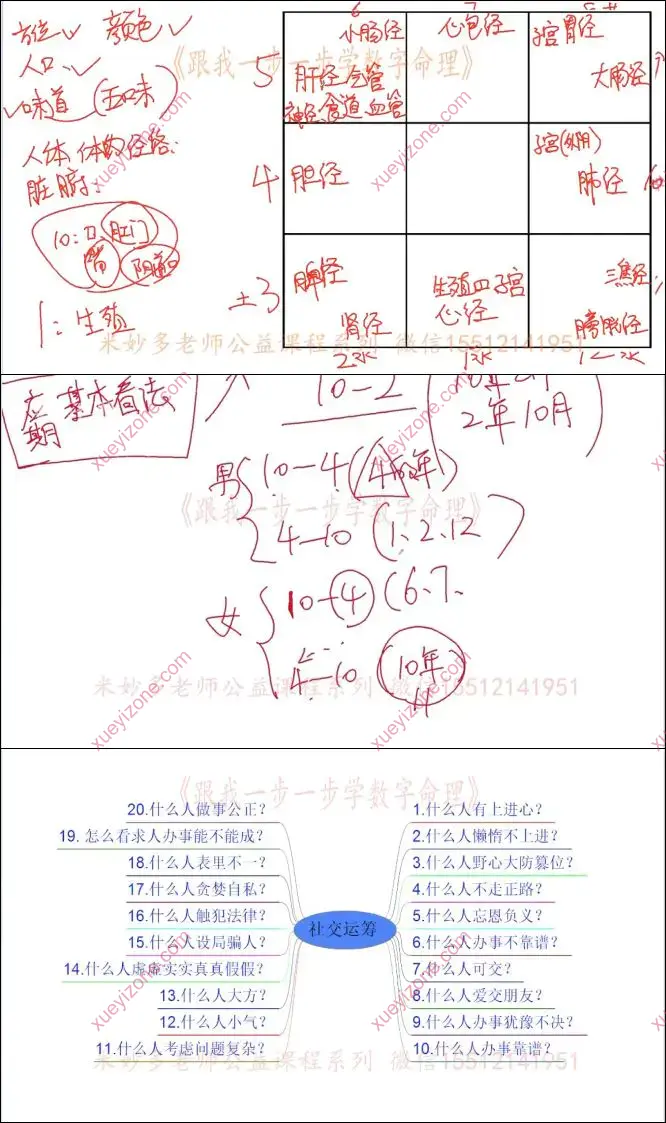 方位 颜色
人口
味道 (五味)
人体 体的经络:
脏腑:
10: 口、肛门
胃 阴道口
1: 生殖
《跟我一步一步学数字命理》
6 7
小肠经 心包经 子宫胃经
5 肝经 气管 大肠经
神经、食道、血管
子宫(外阴)
4 胆经 肺经
脾经 生殖口子宫 三焦经
土3
肾经 心经 膀胱经
米妙多老师公益课程系列 微信15512141951
2水 1水 12水
xueyizone.com
xueyizone.com
xueyizone.com
xueyizone.com
应期 基本看法
10-2
2年10月
男 10-4
《跟我一步一步学数字命理》
4-10 (1、2、12)
女 10-4 (6、7、
4-10 (10年)
米妙多老师公益课程系列 微信15512141951
xueyizone.com
xueyizone.com
xueyizone.com
xueyizone.com
《跟我一步一步学数字命理》
20.什么人做事公正?
19. 怎么看求人办事能不能成?
18.什么人表里不一?
17.什么人贪婪自私?
16.什么人触犯法律?
15.什么人设局骗人?
14.什么人虚虚实实真真假假?
13.什么人大方?
12.什么人小气?
11.什么人考虑问题复杂?
社交运筹
1.什么人有上进心?
2.什么人懒惰不上进?
3.什么人野心大防篡位?
4.什么人不走正路?
5.什么人忘恩负义?
6.什么人办事不靠谱?
7.什么人可交?
8.什么人爱交朋友?
9.什么人办事犹豫不决?
10.什么人办事靠谱?
米妙多老师公益课程系列 微信15512141951
xueyizone.com
xueyizone.com
xueyizone.com
xueyizone.com